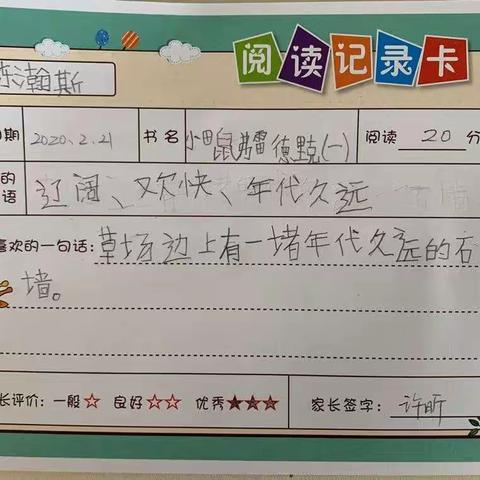 阅读记录卡
陈瀚斯
日期 2020.2.21 书名 小田鼠弗雷德里克(一) 阅读 20 分
的
语 辽阔、欢快、年代久远
喜欢的一句话:草场边上有一堵年代久远的石
墙。
长评价:一般☆ 良好☆☆ 优秀★★★ 家长签字: 许昕